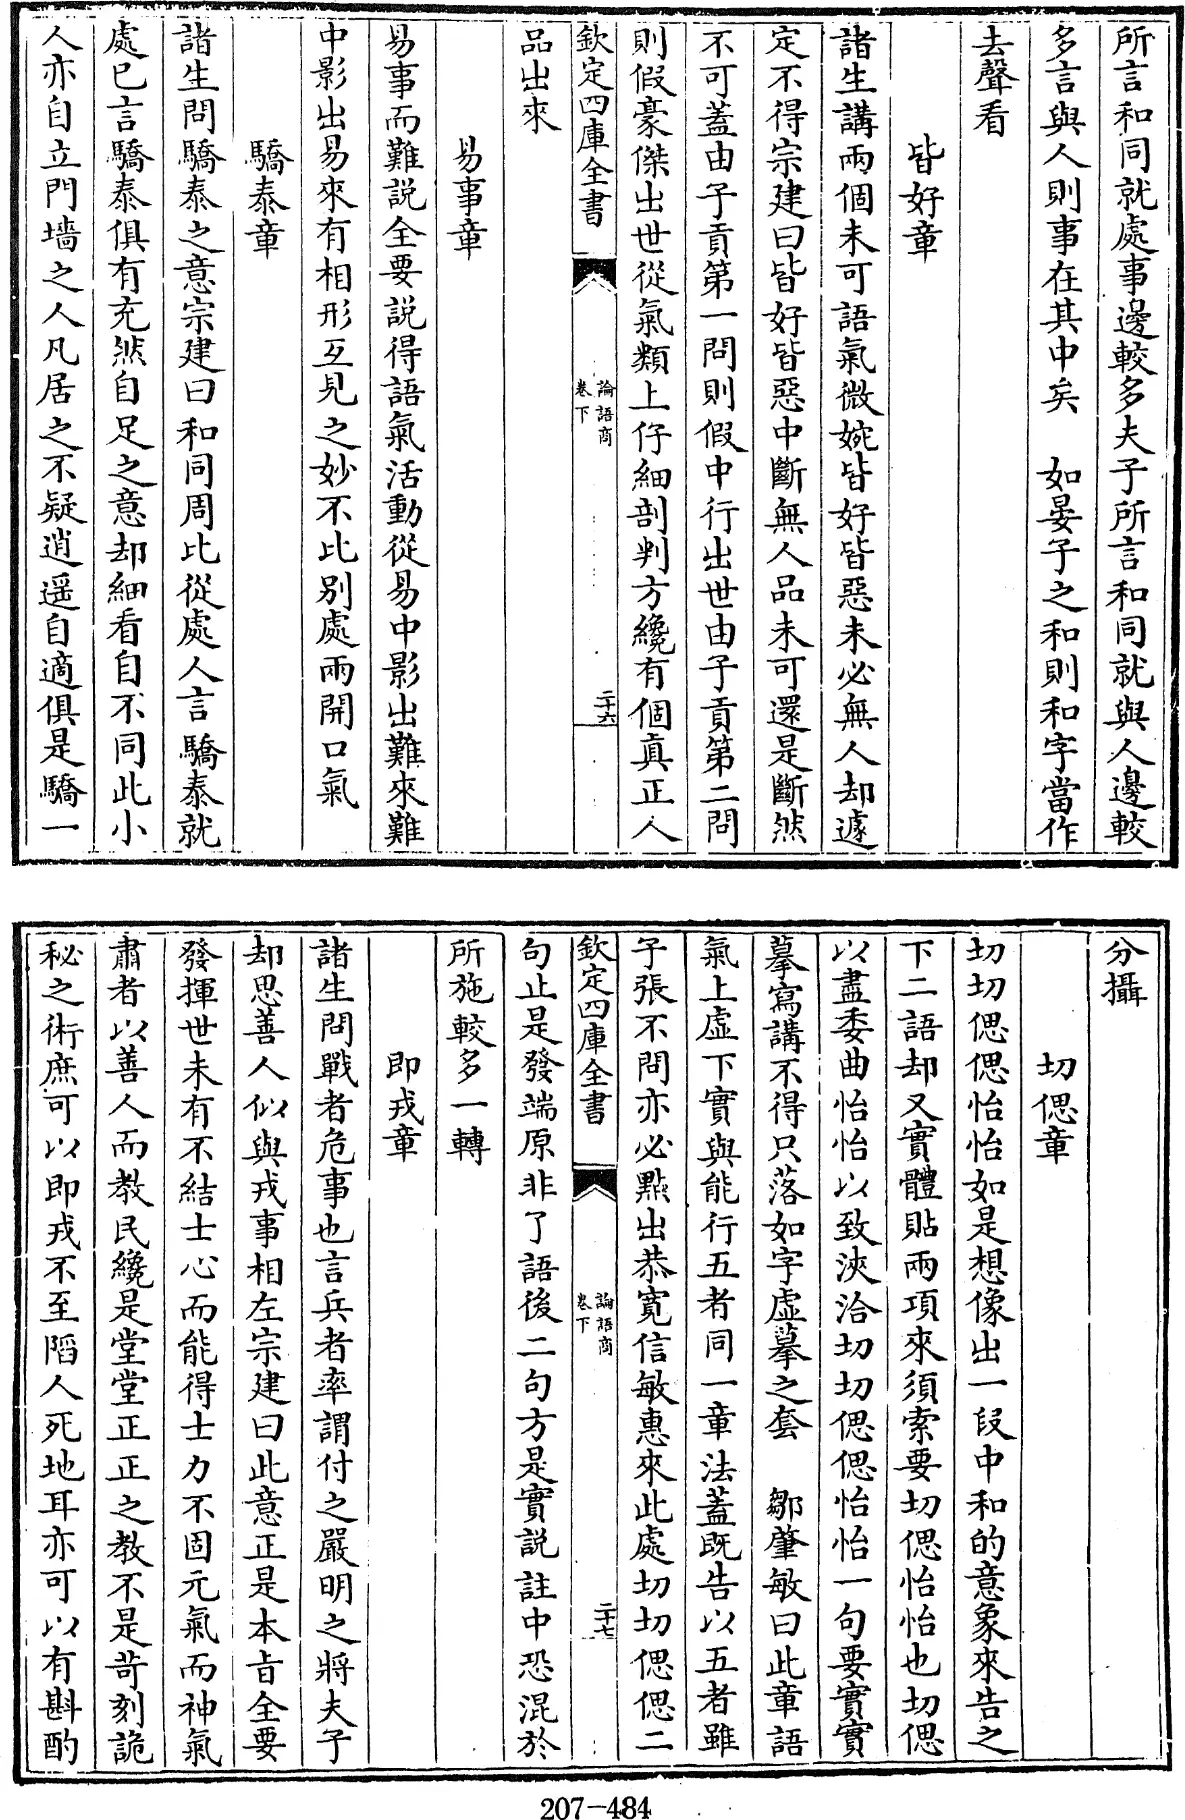 所言和同就處事邊較多夫子所言和同就與人邊較
多言與人則事在其中矣　如晏子之和則和字當作
去聲看
皆好章
諸生講兩個未可語氣微婉皆好皆惡未必無人却遽
定不得宗建曰皆好皆惡中斷無人品未可還是斷然
不可蓋由子貢第一問則假中行出世由子貢第二問
則假豪傑出世從氣類上仔細剖判方纔有個真正人
欽定四庫全書
論語商
卷下
二十六
品出來
易事章
易事而難説全要説得語氣活動從易中影出難來難
中影出易來有相形互見之妙不比別處兩開口氣
驕泰章
諸生問驕泰之意宗建曰和同周比從處人言驕泰就
處已言驕泰俱有充然自足之意却細看自不同此小
人亦自立門墻之人凡居之不疑逍遥自適俱是驕一
分攝
切偲章
切切偲偲怡怡如是想像出一段中和的意象來告之
下二語却又實體貼兩項來須索要切偲怡怡也切偲
以盡委曲怡怡以致浹洽切切偲偲怡怡一句要實實
摹寫講不得只落如字虛摹之套　鄒肇敏曰此章語
氣上虛下實與能行五者同一章法蓋既告以五者雖
子張不問亦必點出恭寛信敏惠來此處切切偲偲二
欽定四庫全書
論語商
卷下
二十七
句止是發端原非了語後二句方是實説註中恐混於
所施較多一轉
即戎章
諸生問戰者危事也言兵者率謂付之嚴明之將夫子
却思善人似與戎事相左宗建曰此意正是本旨全要
發揮世未有不結士心而能得士力不固元氣而神氣
肅者以善人而教民纔是堂堂正正之教不是苛刻詭
秘之術庶可以即戎不至陷人死地耳亦可以有斟酌
207-484